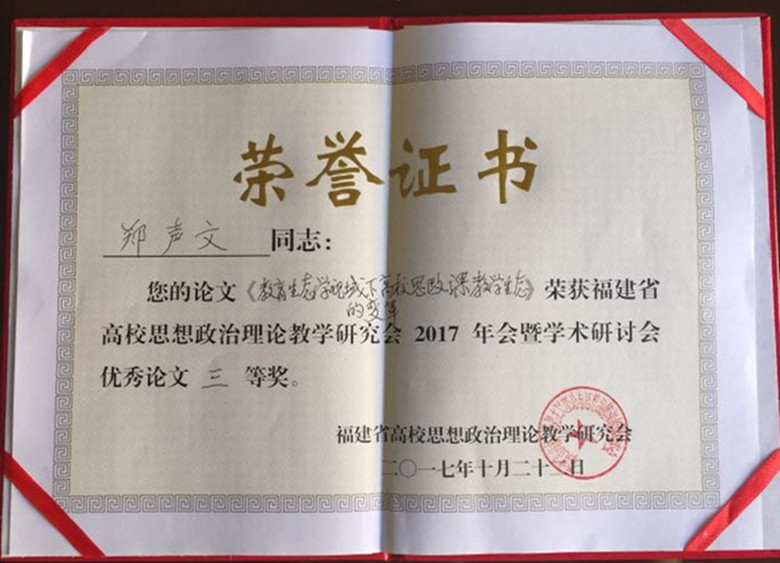 荣誉证书
郑声文 同志:
您的论文《教育生态学视域下高校思政课教学生态》荣获福建省
的变革
高校思想政治理论教学研究会 2017 年会暨学术研讨会
优秀论文 三 等奖。
福建省高校思想政治理论教学研究会
二〇一七年十月二十二日